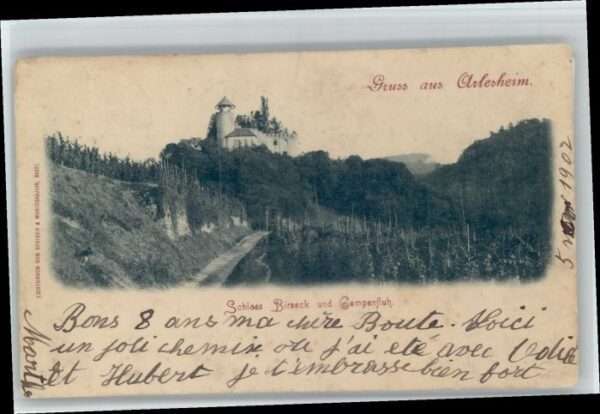 Gruss aus Arlesheim.
Schloss Birseck und Gempenfluh.
5 1902
Bons 8 ans ma chère Boute. Voici
un joli chemin ou j'ai eté avec
et Hubert je t'embrasse bien fort